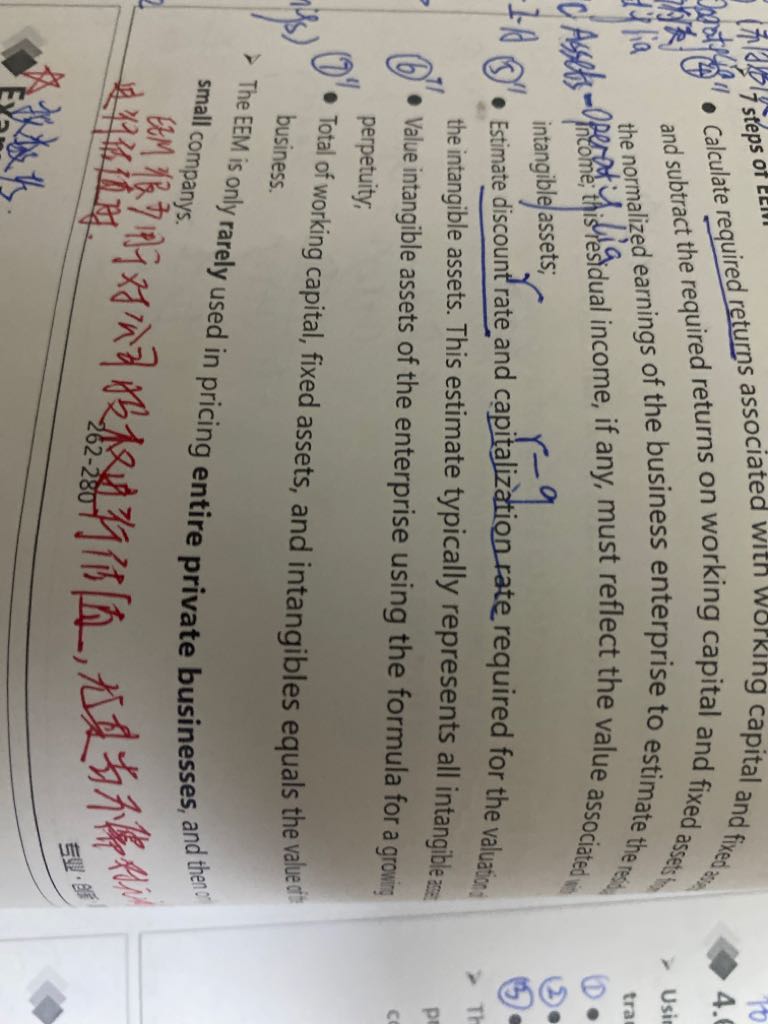 7 steps of EEM
④ • Calculate required returns associated with working capital and fixed
and subtract the required returns on working capital and fixed assets
the normalized earnings of the business enterprise to estimate the
income; this residual income, if any, must reflect the value associated
intangible assets;
Assets - Operat
r r-g
⑤ • Estimate discount rate and capitalization rate required for the valuation
the intangible assets. This estimate typically represents all intangible
⑥ • Value intangible assets of the enterprise using the formula for a growing
perpetuity;
⑦ • Total of working capital, fixed assets, and intangibles equals the value of
business.
➢ The EEM is only rarely used in pricing entire private businesses, and then
small companys.
EEM 很少用于对公司股权进行估值,尤其当
进行估值时.
262-280
专业·创新
4.
➢ Usi
tra
① •
② •
③ •
➢ Th